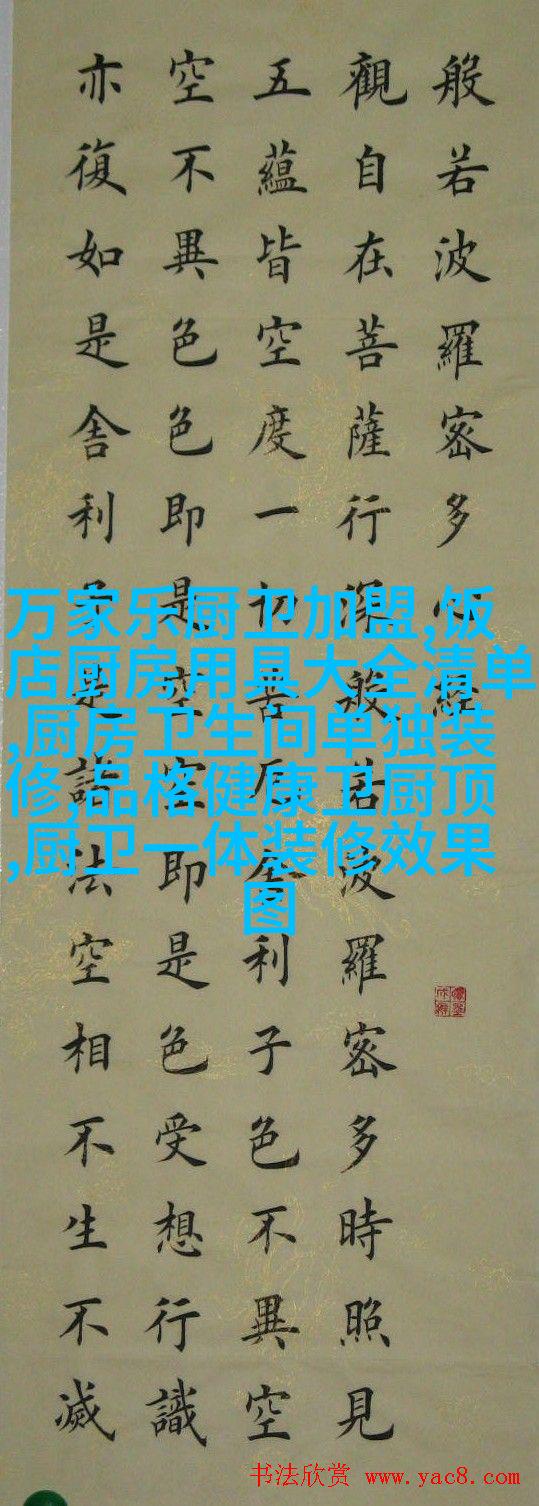 般若波羅密多心經
觀自在菩薩行深般若波羅密多時照見
五蘊皆空度一初苦厄舍利子色不異空
空不異色色即是空空即是色受想行識
亦復如是舍利子是諸法空相不生不滅
万家乐厨卫加盟,饭
店厨房用具大全清单
,厨房卫生间单独装
修,品格健康卫厨顶
,厨卫一体装修效果
图
书法欣赏 www.yac8.com